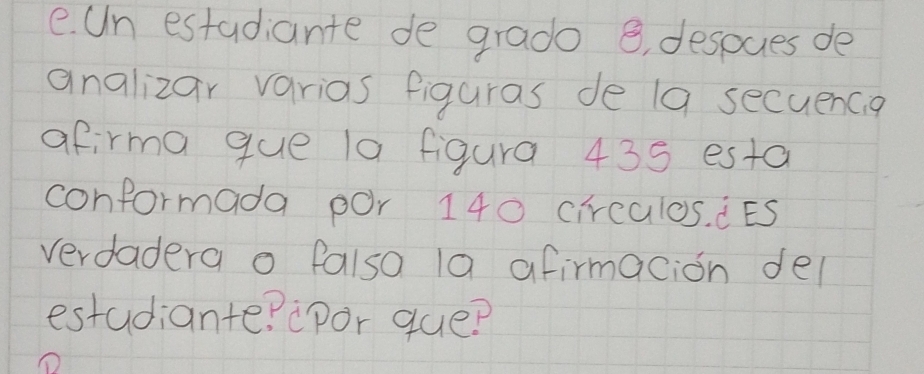 e. Un estudiante de grado 8, despues de
analizar varias figuras de la secuencia
afirma que la figura 435 esta
conformada por 140 círculos. ¿ES
verdadera o falsa la afirmación del
estudiante? ¿por que?
R